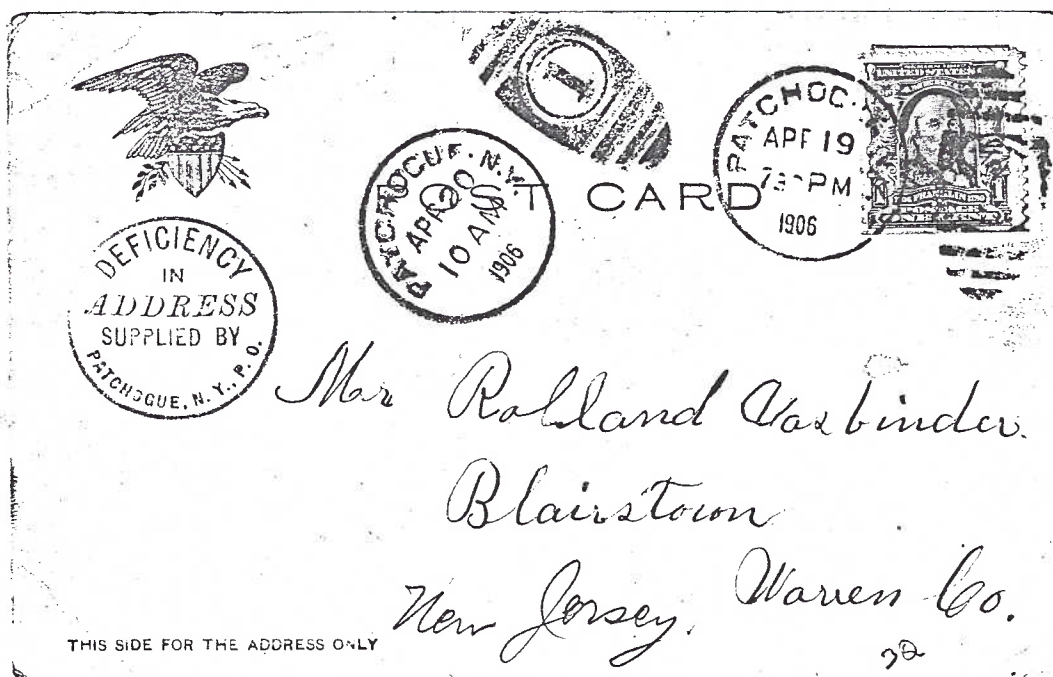 PATCHOGUE, N.Y.
APR 20
10 AM
1906
1
PATCHOG
APR 19
7 30 PM
1906
UNITED STATES
POST CARD
DEFICIENCY
IN
ADDRESS
SUPPLIED BY
PATCHOGUE, N. Y., P. O.
Mr Rolland Vosbinder.
Blairstown
New Jersey. Warren Co.
THIS SIDE FOR THE ADDRESS ONLY